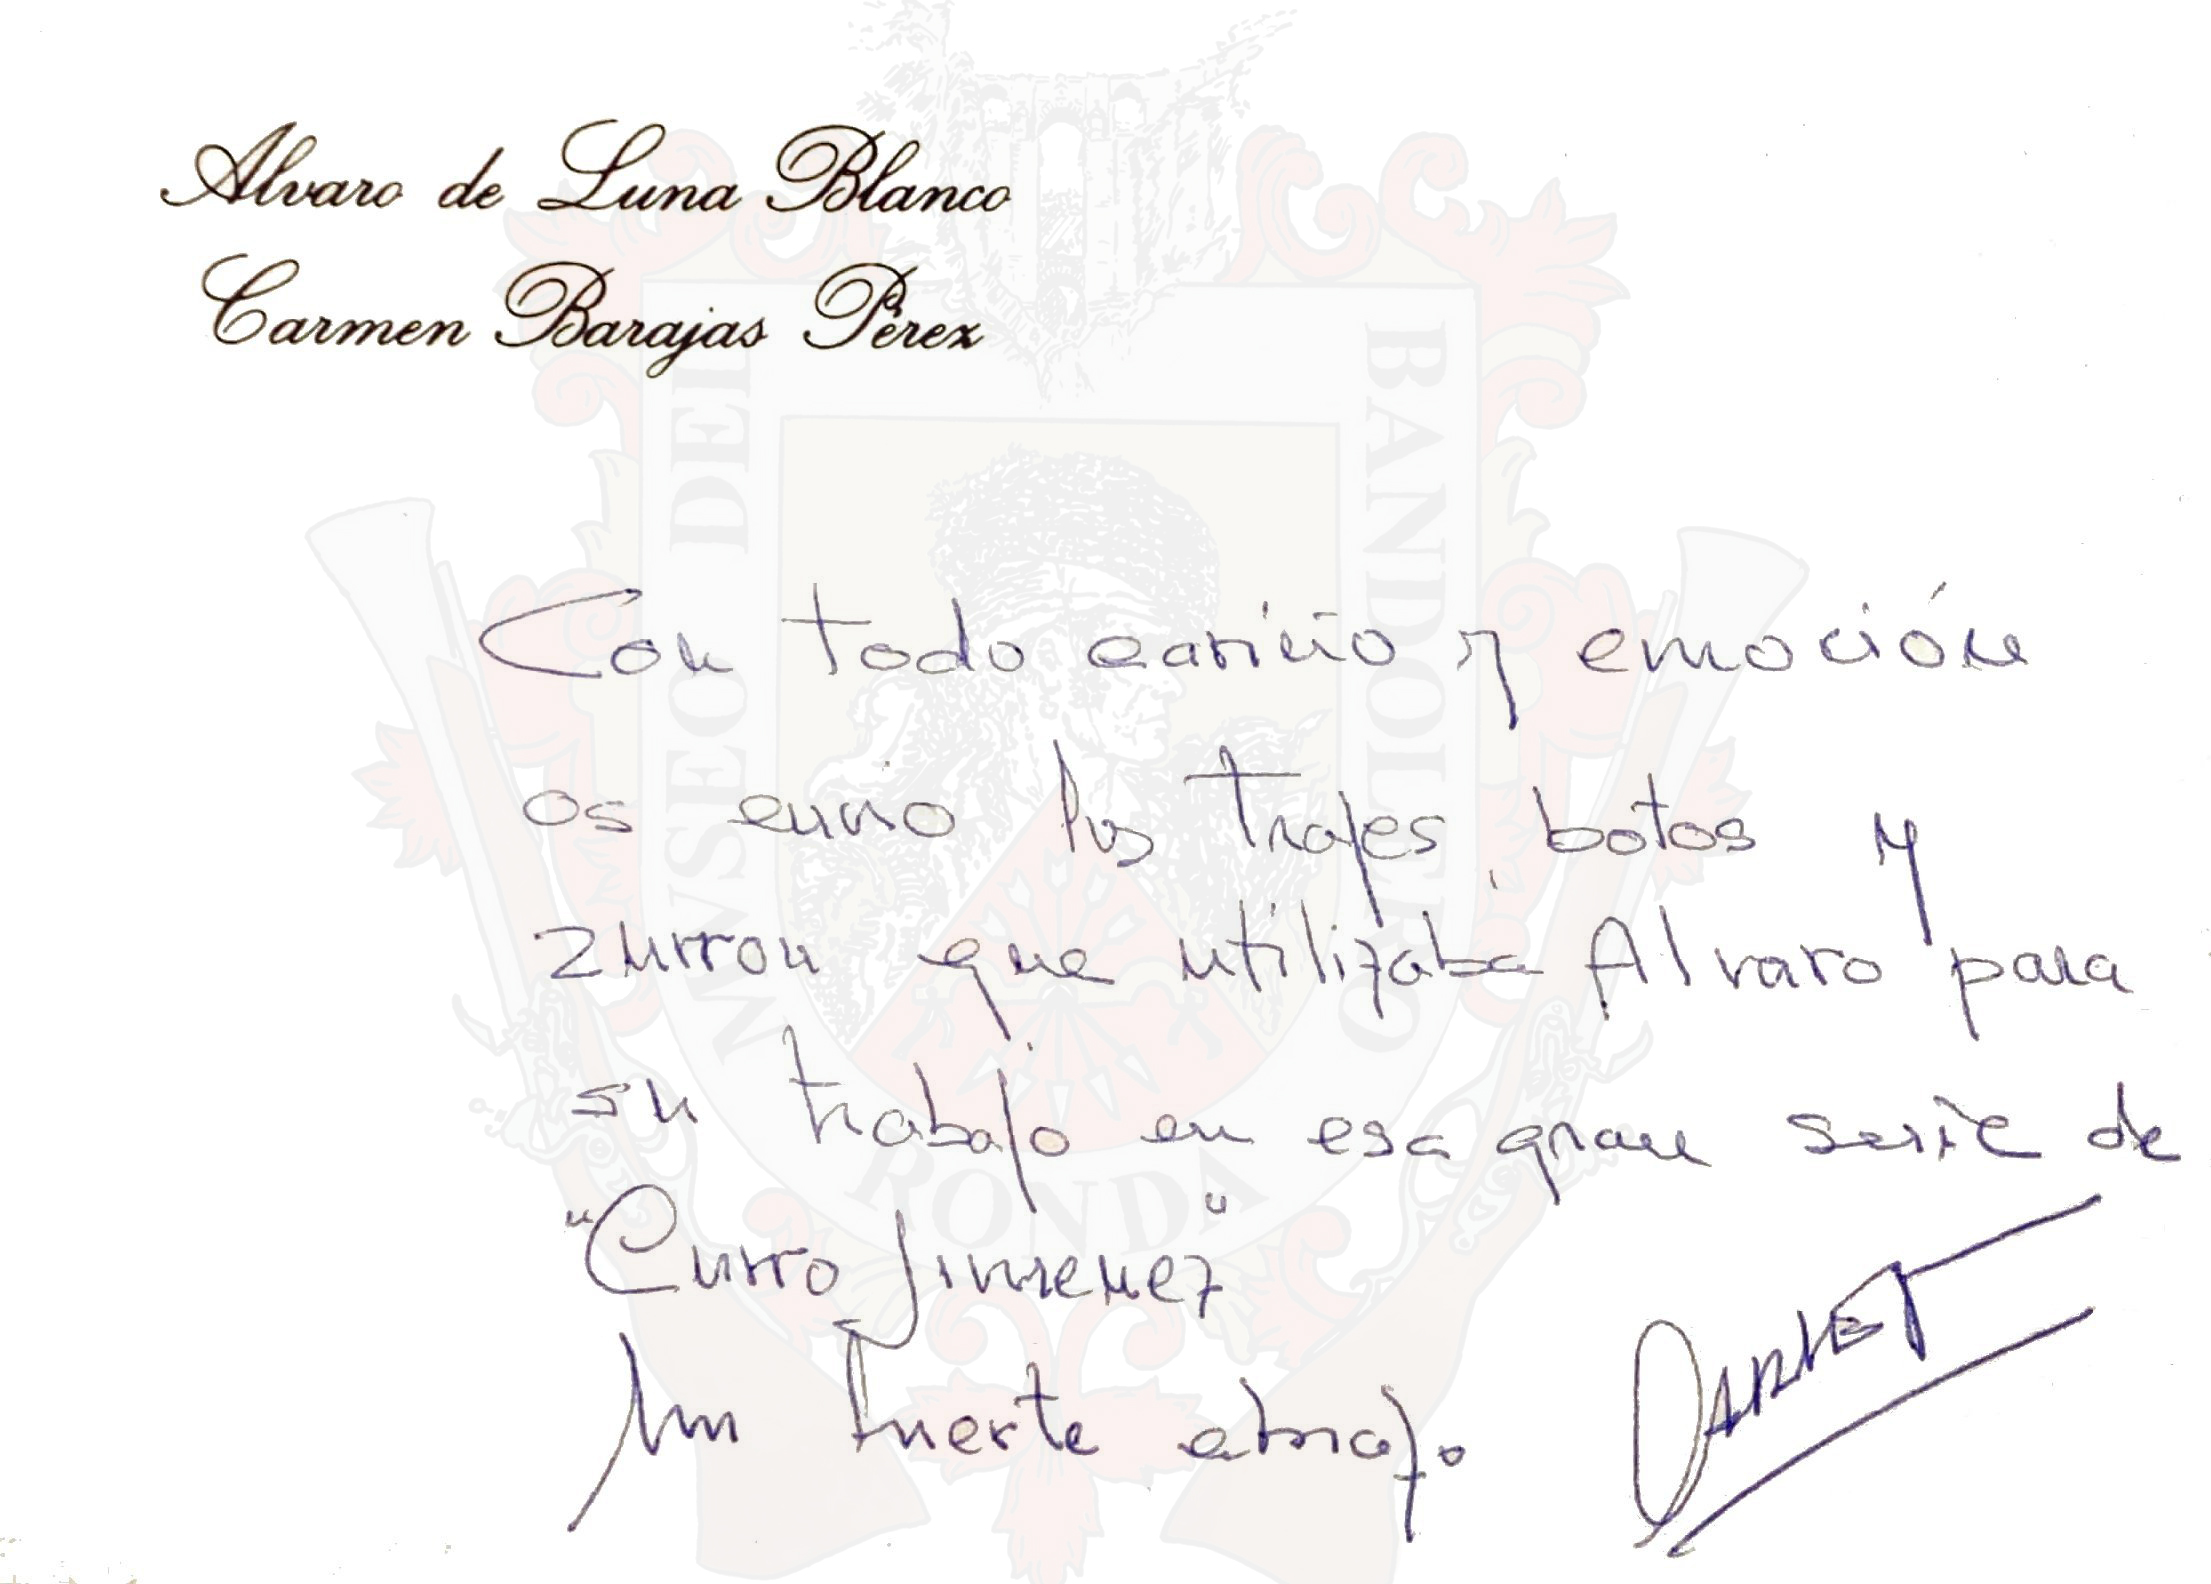 Alvaro de Luna Blanco
Carmen Barajas Pérez
MVSEO DEL BANDOLERO
RONDA
Con todo cariño y emoción
os envio los trajes, botos y
zurron que utilizaba Alvaro para
su trabajo en esa gran serie de
"Curro Jimenez"
Un fuerte abrazo